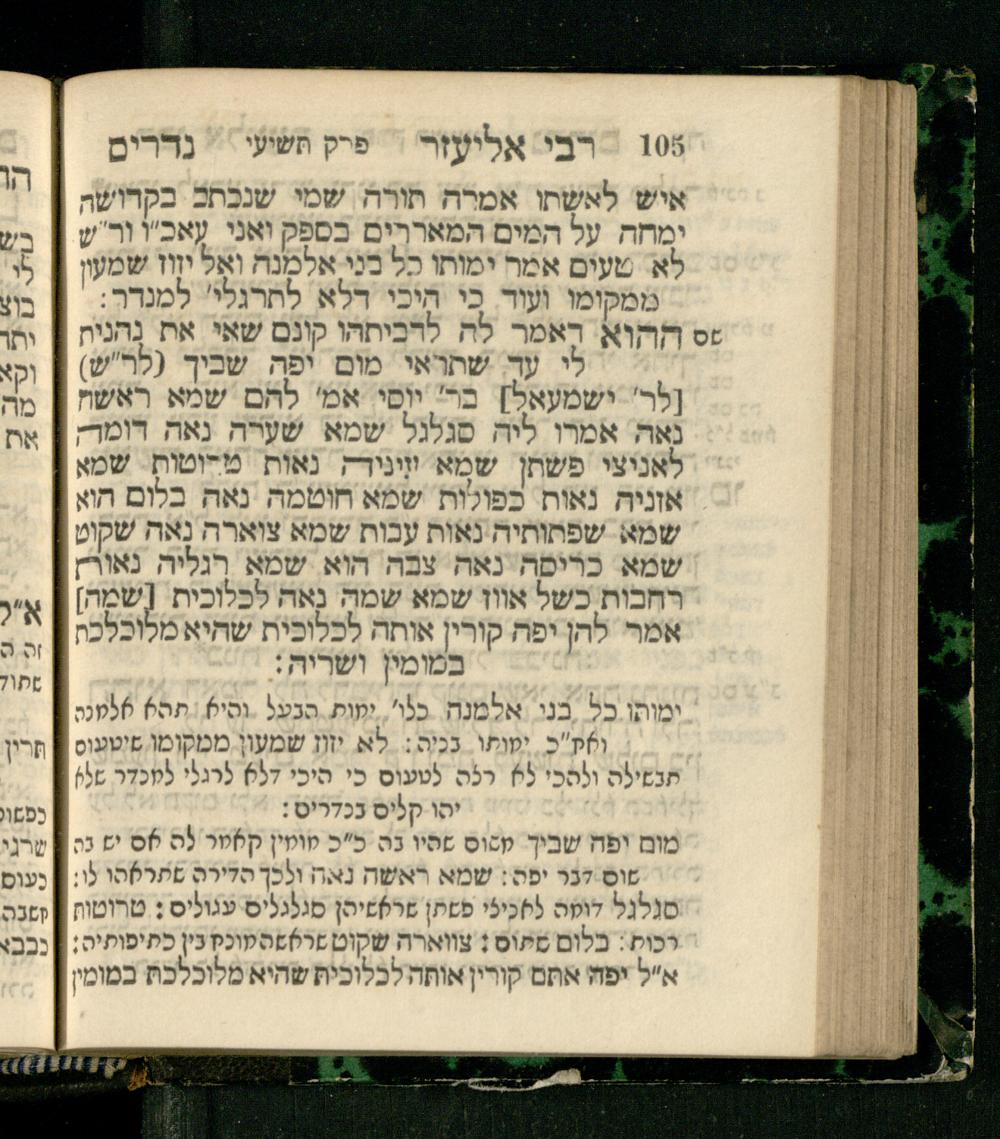 105 רבי אליעזר פרק תשיעי נדרים
איש לאשתו אמרה תורה שמי שנכתב בקדושה
ימחה על המים המאררים בספק ואני עאכ"ו ור"ש
לא טעים אמר ימותו כל בני אלמנה ואל יזוז שמעון
ממקומו ועוד כי היכי דלא לתרגלי' למנדר:
שם ההוא דאמר לה לדביתהו קונם שאי את נהנית
לי עד שתראי מום יפה שביך (לר"ש)
[לר' ישמעאל] בר' יוסי אמ' להם שמא ראשה
נאה אמרו ליה סגלגל שמא שערה נאה דומה
לאניצי פשתן שמא עיניה נאות טרוטות שמא
אזניה נאות כפולות שמא חוטמה נאה בלום הוא
שמא שפתותיה נאות עבות שמא צוארה נאה שקוט
שמא כריסה נאה צבה הוא שמא רגליה נאות
רחבות כשל אווז שמא שמה נאה לכלוכית [שמה]
אמר להן יפה קורין אותה לכלוכית שהיא מלוכלכת
במומין ושריה:
ימותו כל בני אלמנה כלו' ימות הבעל והיא תהא אלמנה
ואח"כ ימותו בניה: לא יזוז שמעון ממקומו שיטעום
תבשילה ולהכי לא רצה לטעום כי היכי דלא לרגלי למנדר שלא
יהו קלים בנדרים:
מום יפה שביך משום שהיו בה כ"כ מומין קאמר לה אם יש בה
שום דבר יפה: שמא ראשה נאה ולכך הדירה שתראהו לו:
סגלגל דומה לאניצי פשתן שראשיהן סגלגלים עגולים: טרוטות
רכות: בלום סתום: צווארה שקוט שראשה מונח בין כתיפותיה:
א"ל יפה אתם קורין אותה לכלוכית שהיא מלוכלכת במומין